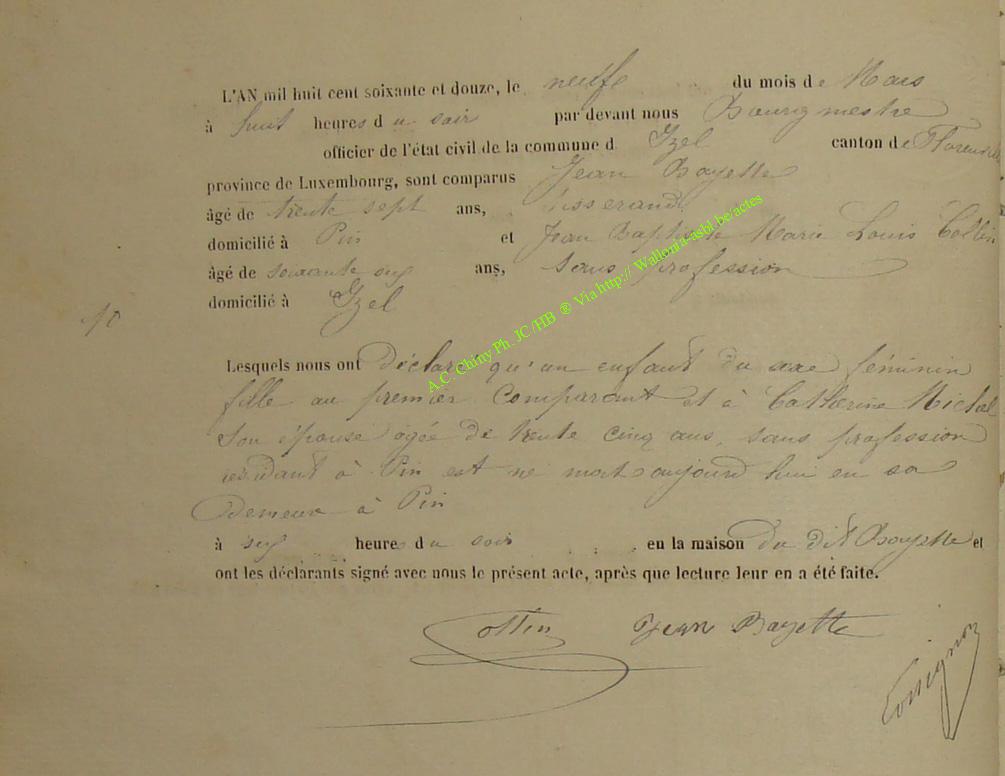 L'AN mil huit cent soixante et douze, le neuf du mois de Mars
à huit heures du soir par devant nous Bourgmestre
officier de l'état civil de la commune d Izel canton de Florenville
province de Luxembourg, sont comparus Jean Bayette
âgé de trente sept ans, tisserand
domicilié à Pin et Jean Baptiste Marie Louis Collin
âgé de soixante ans, sans profession
domicilié à Izel
10
Lesquels nous ont déclaré qu'un enfant du sexe féminin
fille au premier Comparant et à Catherine Michel
Son épouse agée de trente cinq ans, sans profession
résidant à Pin est né mort aujourd'hui en sa
demeure à Pin
à six heures du soir en la maison du dit Bayette et
ont les déclarants signé avec nous le présent acte, après que lecture leur en a été faite.
Jean Bayette
A.C. Chiny Ph. JC/HB ® Via http:// Wallonia-asbl.be/actes